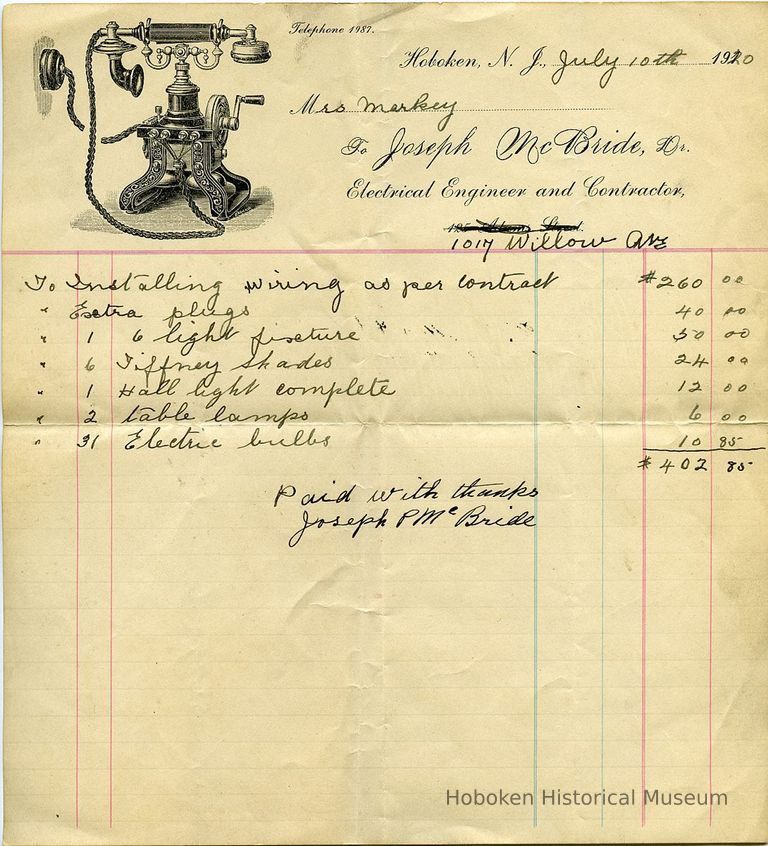 Telephone 1987.
Hoboken, N. J., July 10th 1920
Mrs Markey
To Joseph McBride, Dr.
Electrical Engineer and Contractor,
1017 Willow Ave
To Installing wiring as per contract $260 00
" Extra plugs 40 00
" 1 6 light fixture 50 00
" 6 Tiffney shades 24 00
" 1 Hall light complete 12 00
" 2 table lamps 6 00
" 31 Electric bulbs 10 85
$402 85
Paid with thanks
Joseph P McBride
Hoboken Historical Museum